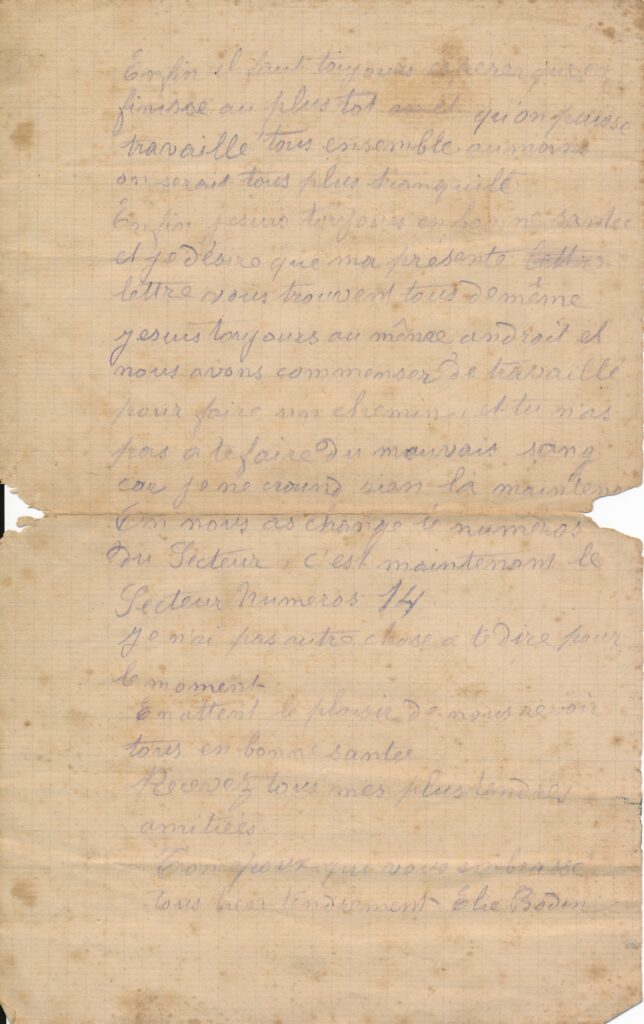 Enfin il faut toujours esperer que ça
finisse au plus tot et qu'on puisse
travaillé tous ensemble aumoins
on serait tous plus tranquille
Enfin je suis toujours en bonne santee
et je désire que ma présente lettre
lettre vous trouvent tous de même
je suis toujours au même androit et
nous avons commenser de travaillé
pour faire un chemin, et tu n'as
pas à te faire du mauvais sang
car je ne craind rien là maintenant
nous as change le numéros
du Secteur c'est maintenant le
Secteur Numeros 14.
Je n'ai pas autre chose à te dire pour
le moment
En attent le plaisir de nous revoir
tous en bonne santée
Recevez tous mes plus tendres
amitiées
Ton epoux qui vous embrasse
tous bien tendrement Elie Bodin